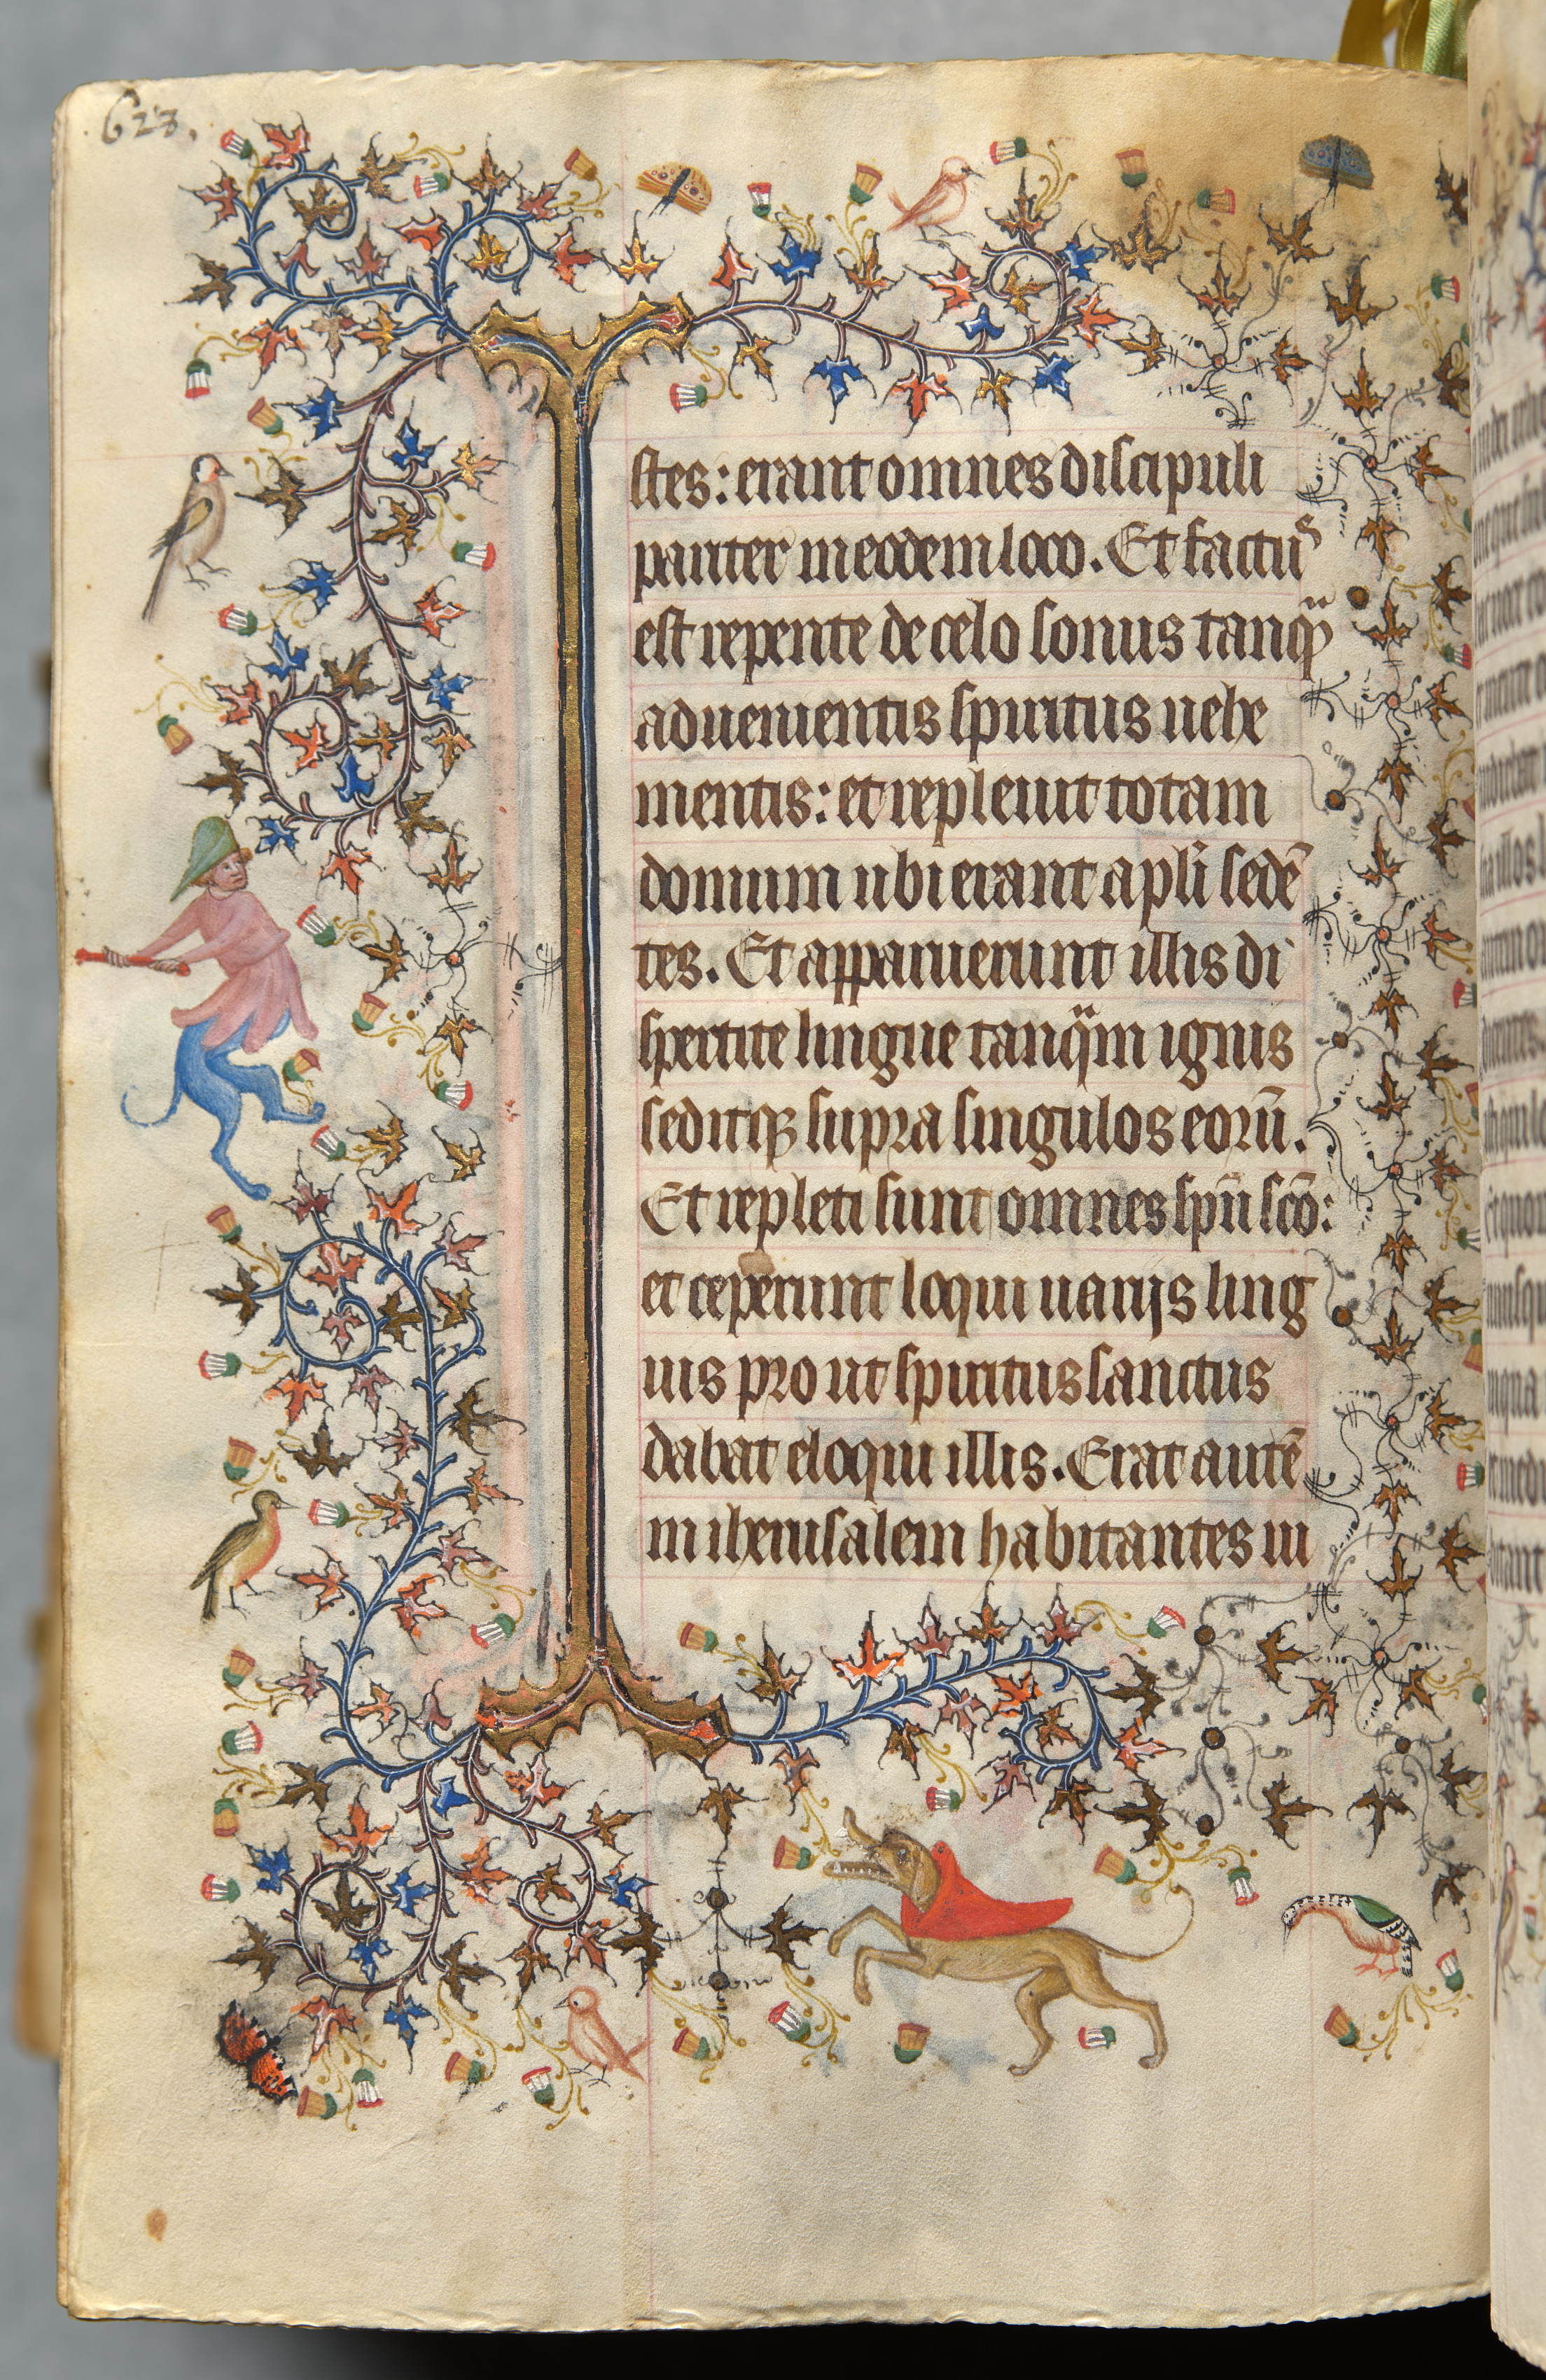 623.
stes: erant omnes discipuli
pariter in eodem loco. Et factus
est repente de celo sonus tanqᷓ
aduenientis spiritus uehe
mentis: et repleuit totam
domum ubi erant apli sedē
tes. Et apparuerunt illis di
spertite lingue tanqᷓm ignis
seditqꝫ supra singulos eorū.
Et repleti sunt omnes spū scō:
et ceperunt loqui uarijs ling
uis prout spiritus sanctus
dabat eloqui illis. Erat autē
in iherusalem habitantes iu